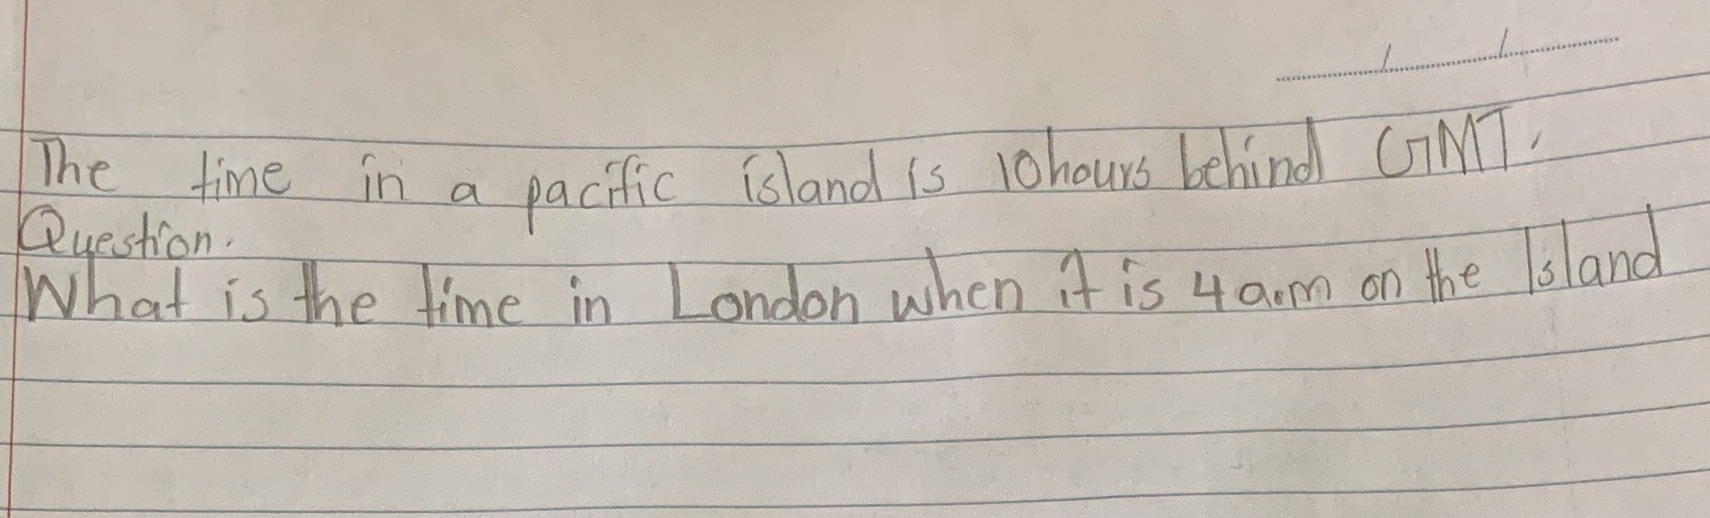 The time in a pacific island is 10hours behind GMT.
Question.
What is the time in London when it is 4a.m on the Island